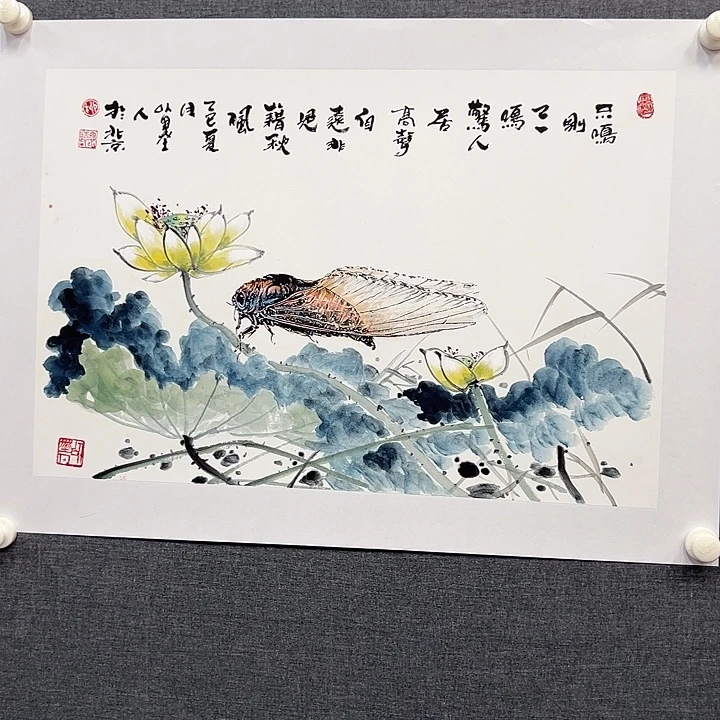 不鳴
則
已一
鳴
驚人
居
高聲
自
遠非
是
藉秋
風
乙巳夏
月
人
於北京